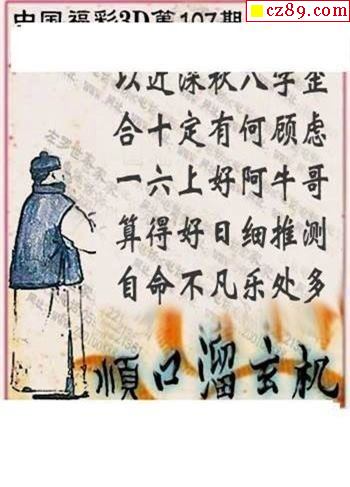 cz89.com
中国福彩3D第107期
以近深秋八字歪
合十定有何顾虑
一六上好阿牛哥
算得好日细推测
自命不凡乐处多
順口溜玄机